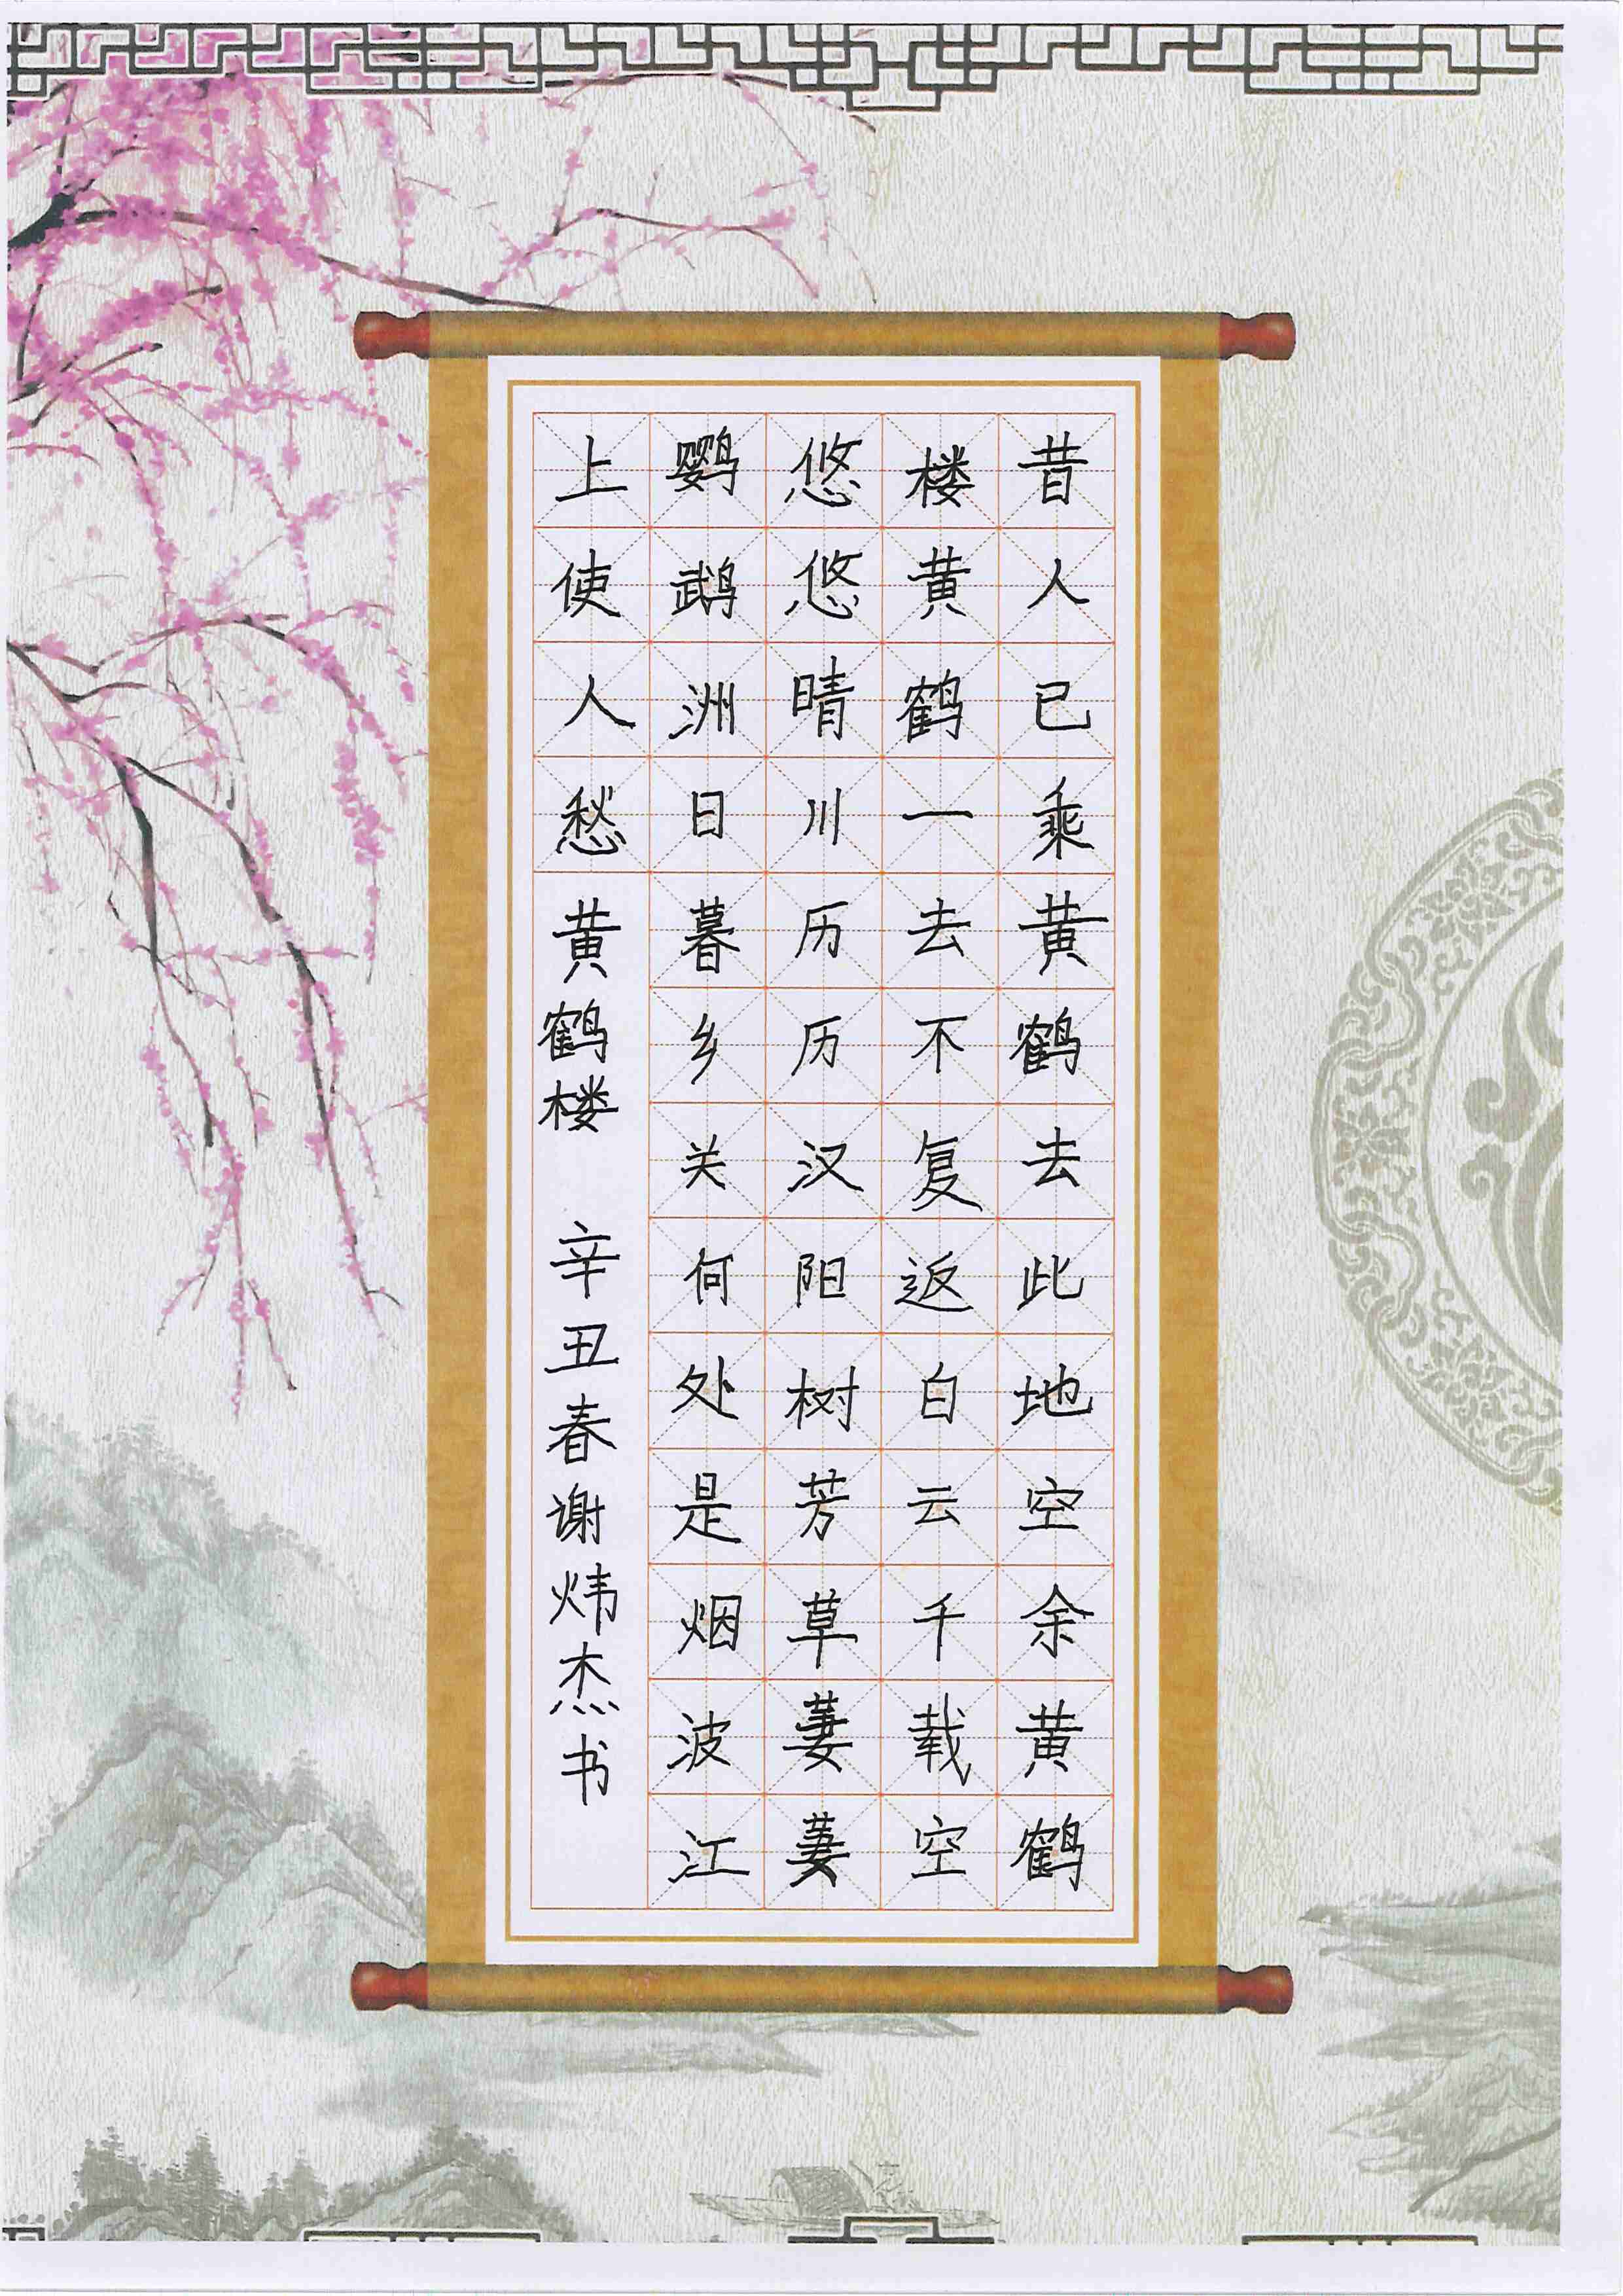 昔人已乘黄鹤去此地空余黄鹤
楼黄鹤一去不复返白云千载空
悠悠晴川历历汉阳树芳草萋萋
鹦鹉洲日暮乡关何处是烟波江
上使人愁黄鹤楼 辛丑春谢炜杰书